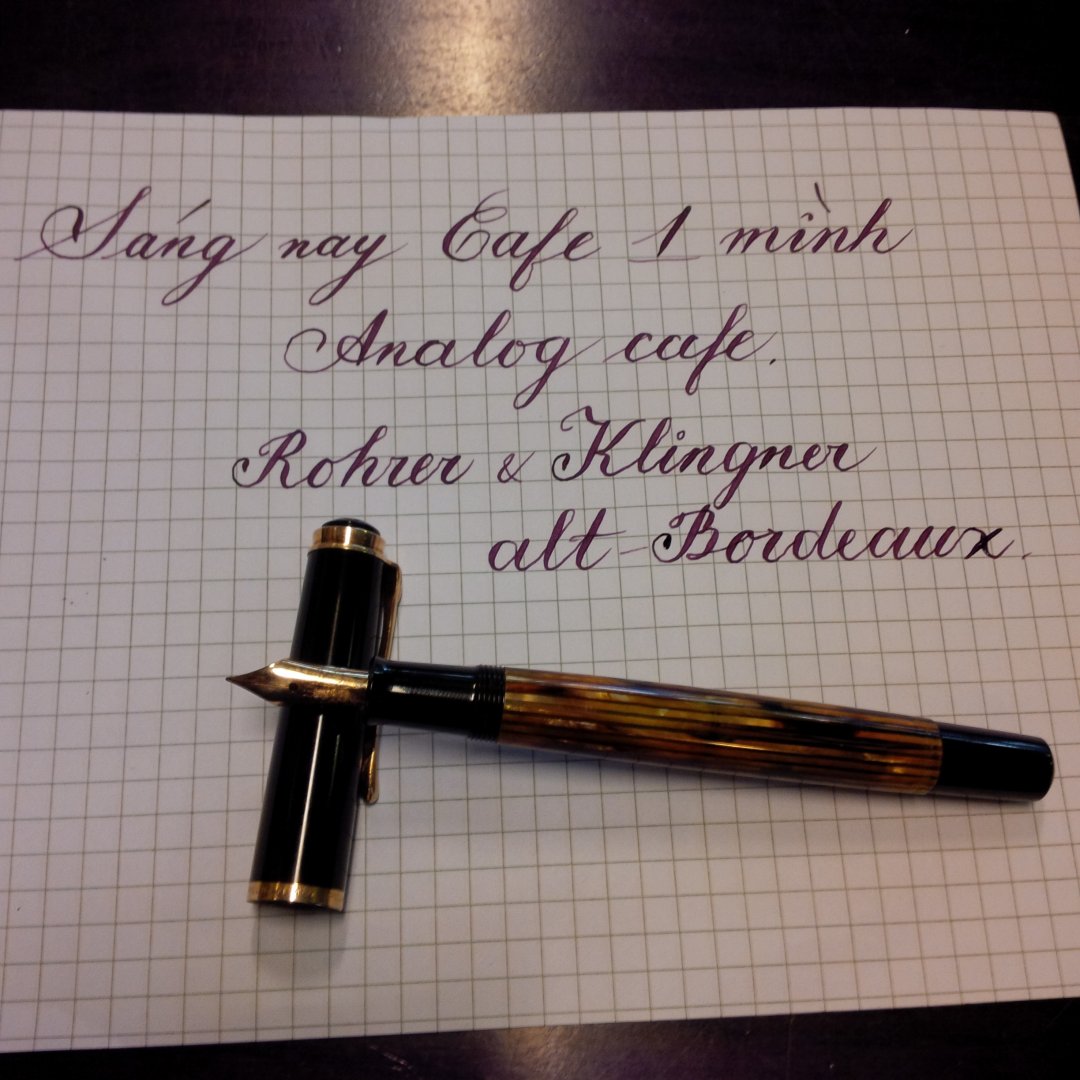 Sáng nay Cafe 1 mình
Analog cafe.
Rohrer & Klingner
alt-Bordeaux.